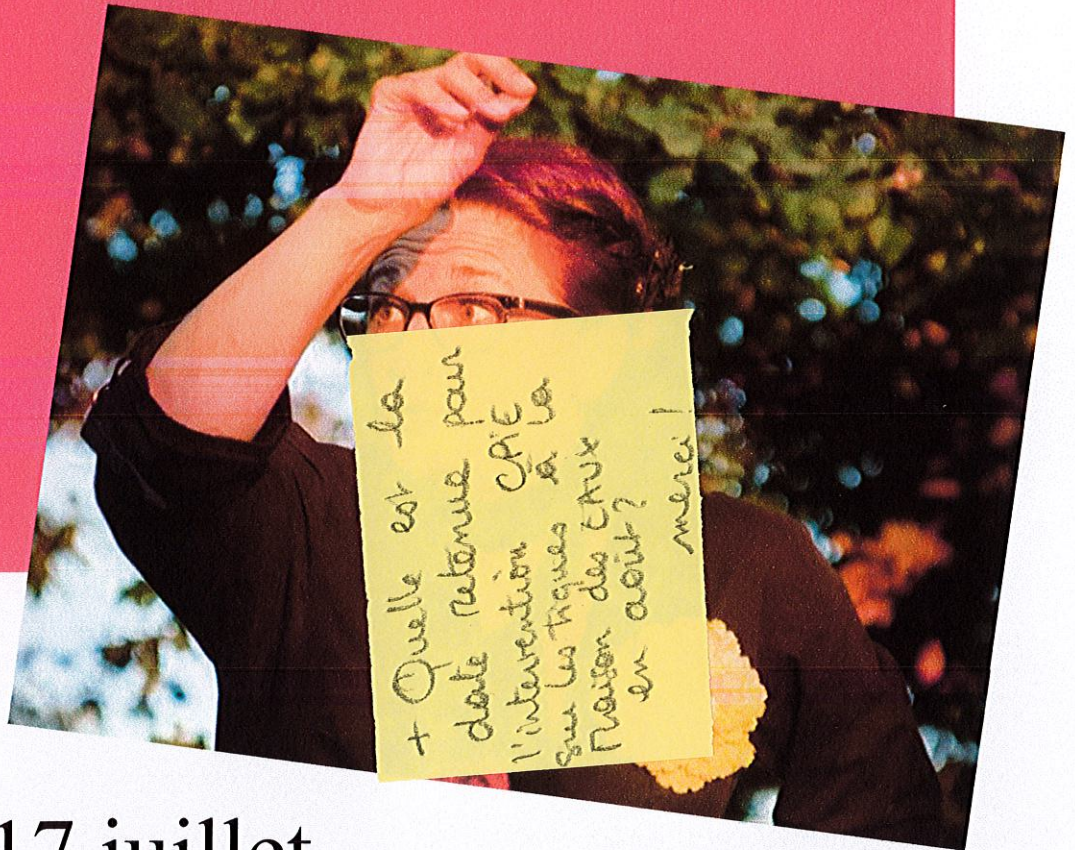 + Quelle est la
date retenue pour
l'intervention CPIE
sur les Tiques à la
Maison des EAUX
en août?
merci!
17 juillet